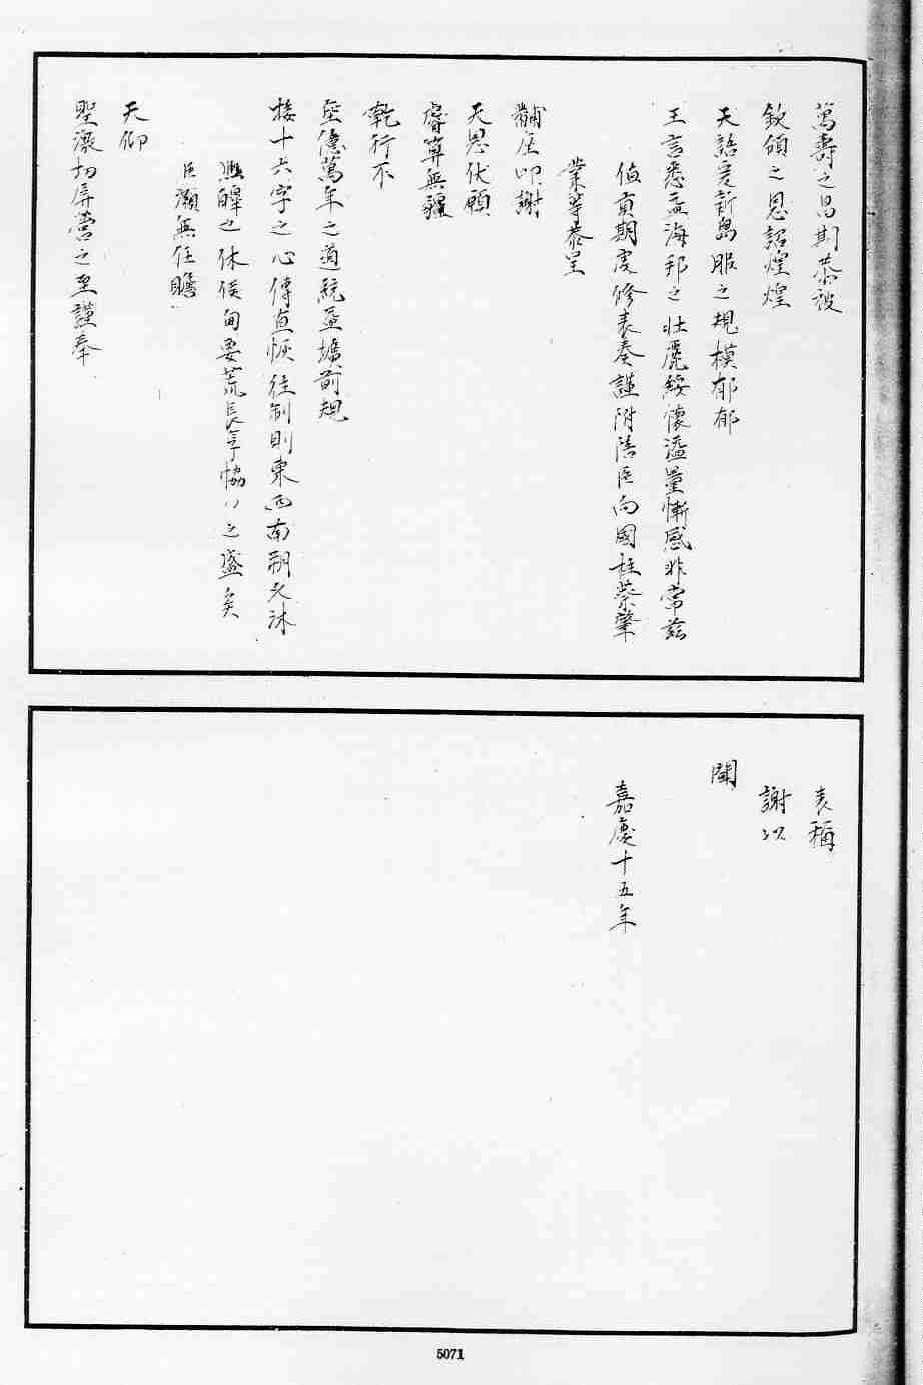 萬壽之昌期恭被
敦頒之恩詔煌煌
天語爰新島服之規模郁郁
王言悉孟海邦之壯麗綏懷溢量慚感非常茲
值貢期虔修表奏謹附陪臣向國柱蔡肇
業等恭呈
黼座叩謝
天恩伏願
睿算無疆
乾行不
至億萬年之道統孟擴前規
接十六字之心傳直恢往制則東西南朔久沐
熙皡之休侯甸要荒長孚協八之盛矣
臣灝無任瞻
天仰
聖激切屏營之至謹奉
表稱
謝以
聞
嘉慶十五年
5071